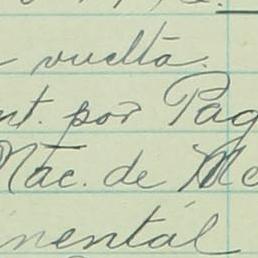 vuelta.
nt. por Pag
Nac. de Me
nental